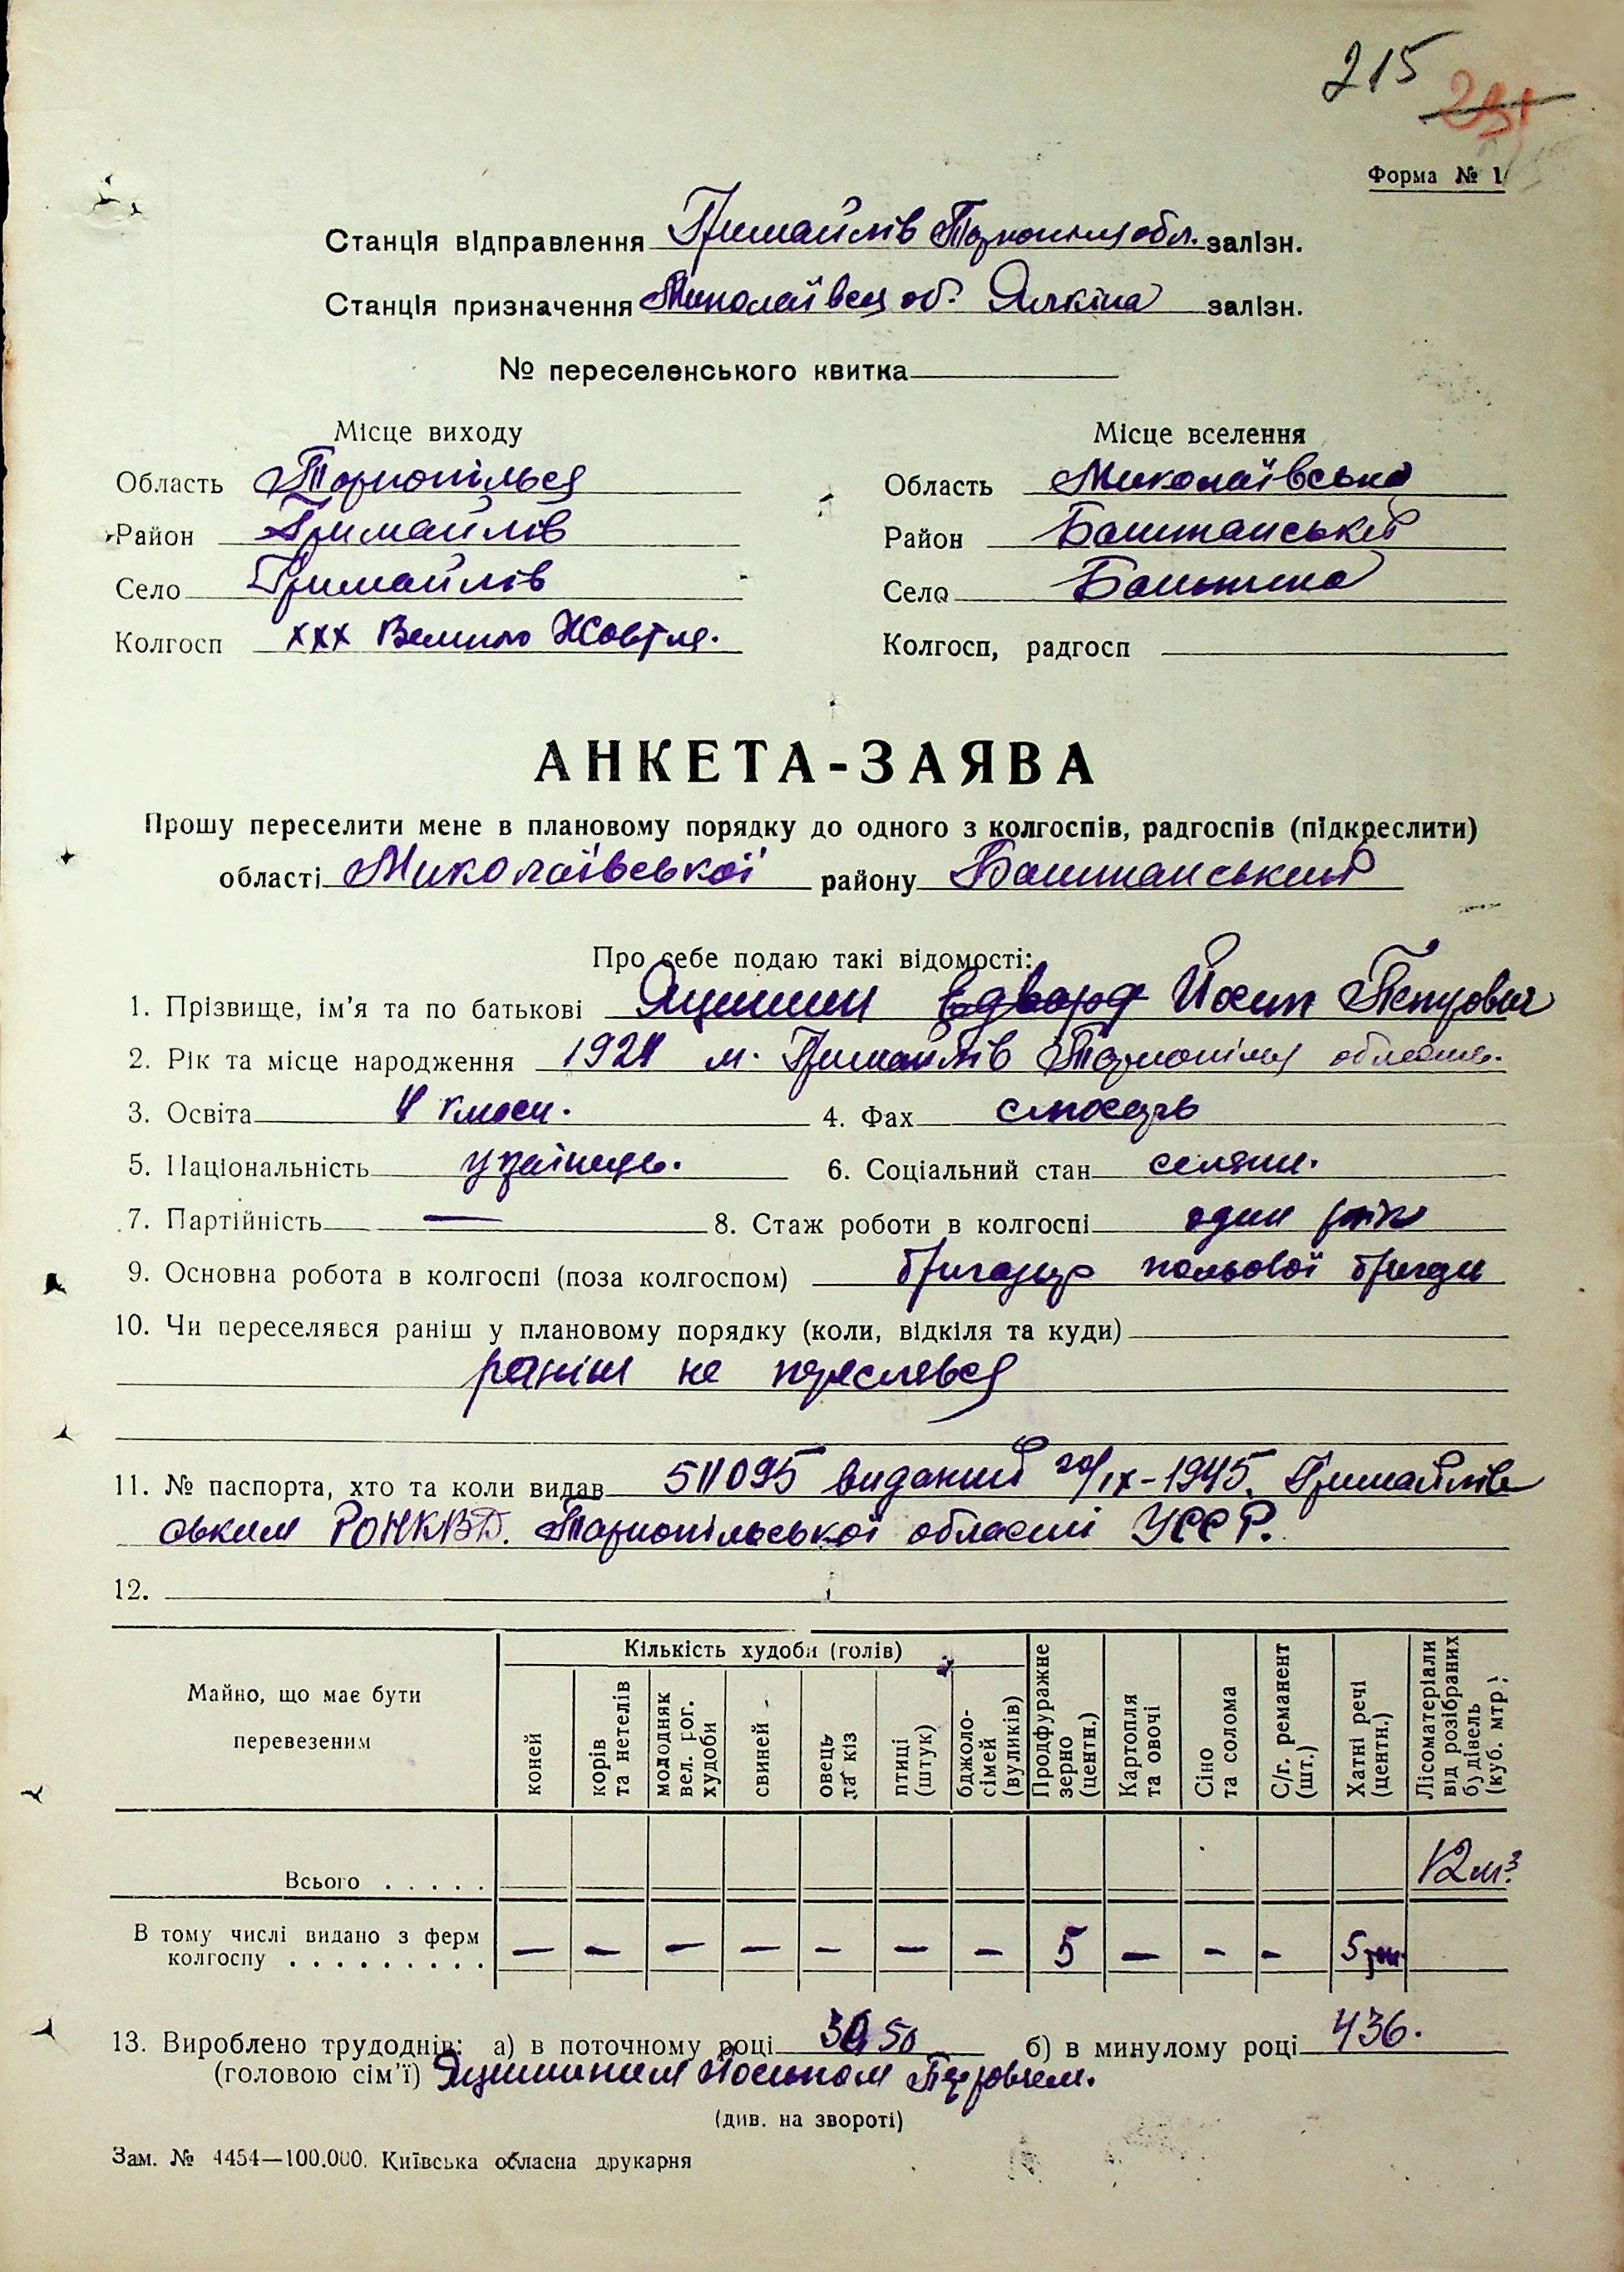 215
Форма № 1
Станція відправлення Гримайлів Тернопільс обл. залізн.
Станція призначення Миколаївська об. Явкіна залізн.
№ переселенського квитка
Місце виходу Місце вселення
Область Тернопілься Область Миколаївська
Район Гримайлів Район Баштанський
Село Гримайлів Село Баштина
Колгосп ХХХ Велико Жовтня. Колгосп, радгосп
АНКЕТА-ЗАЯВА
Прошу переселити мене в плановому порядку до одного з колгоспів, радгоспів (підкреслити)
області Миколаївської району Баштанський
Про себе подаю такі відомості:
1. Прізвище, ім'я та по батькові Яцишин Едвард Йосип Петрович
2. Рік та місце народження м. Гримайлів Тернопільс область.
3. Освіта 4 класи. 4. Фах слюсарь
5. Національність українець. 6. Соціальний стан селянин.
7. Партійність — 8. Стаж роботи в колгоспі один рік
9. Основна робота в колгоспі (поза колгоспом) бригадир польової бригади
10. Чи переселявся раніш у плановому порядку (коли, відкіля та куди)
раніш не переслявся
11. № паспорта, хто та коли видав 511095 виданий 20/IX-1945. Гримайлів
ським РОНКВД. Тарнопільської області УССР.
12.
Майно, що має бути перевезеним
Кількість худоби (голів)
коней
корів та нетелів
молодняк вел. рог. худоби
свиней
овець та кіз
птиці (штук)
бджоло-сімей (вуликів)
Продфуражне зерно (центн.)
Картопля та овочі
Сіно та солома
С/г. реманент (шт.)
Хатні речі (центн.)
Лісоматеріали від розібраних будівель (куб. мтр)
Всього . . . . . 12 м³
В тому числі видано з ферм
колгоспу . . . . . . . . . — — — — — — — 5 — — — 5
13. Вироблено трудоднів: а) в поточному році б) в минулому році 436.
(головою сім'ї) Яцишиним Йосипом Петровичем.
(див. на звороті)
Зам. № 4454—100.000. Київська обласна друкарня